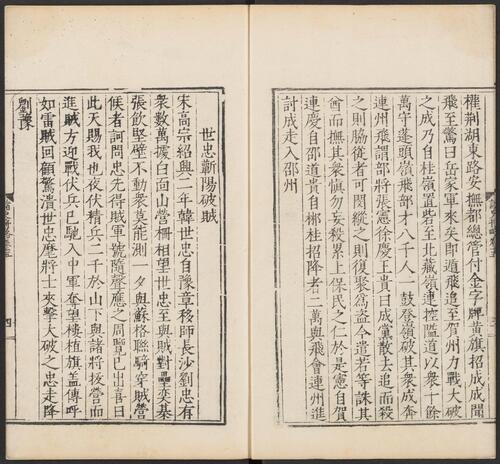 權荆湖東路安撫都總管付金字牌黃旗招成成聞
飛至驚曰岳家軍來矣即遁飛追至賀州力戰大破
之成乃自桂嶺置砦至北藏嶺連控隘道以衆十餘
萬守蓬頭嶺飛部才八千人一鼓登嶺破其衆成奔
連州飛謂部將張憲徐慶王貴曰成黨散去追而殺
之則脇從者可閔縱之則復聚爲盜今遣若等誅其
酋而撫其衆慎勿妄殺累上保民之仁於是憲自賀
連慶自邵道貴自郴桂招降者二萬與飛會連州進
討成走入邵州
世忠蘄陽破賊
宋高宗紹興二年韓世忠自豫章移師長沙劉忠有
衆數萬據白面山營柵相望世忠至與賊對壘奕棊
張飲堅壁不動衆莫能測一夕與蘇格聯騎穿賊營
候者訶問忠先得賊軍號隨聲應之周覽已出喜曰
此天賜我也夜伏精兵二千於山下與諸將拔營而
進賊方迎戰伏兵已馳入中軍奪望樓植旗蓋傳呼
如雷賊回顧驚潰世忠麾將士夾擊大破之忠走降
劉豫
四